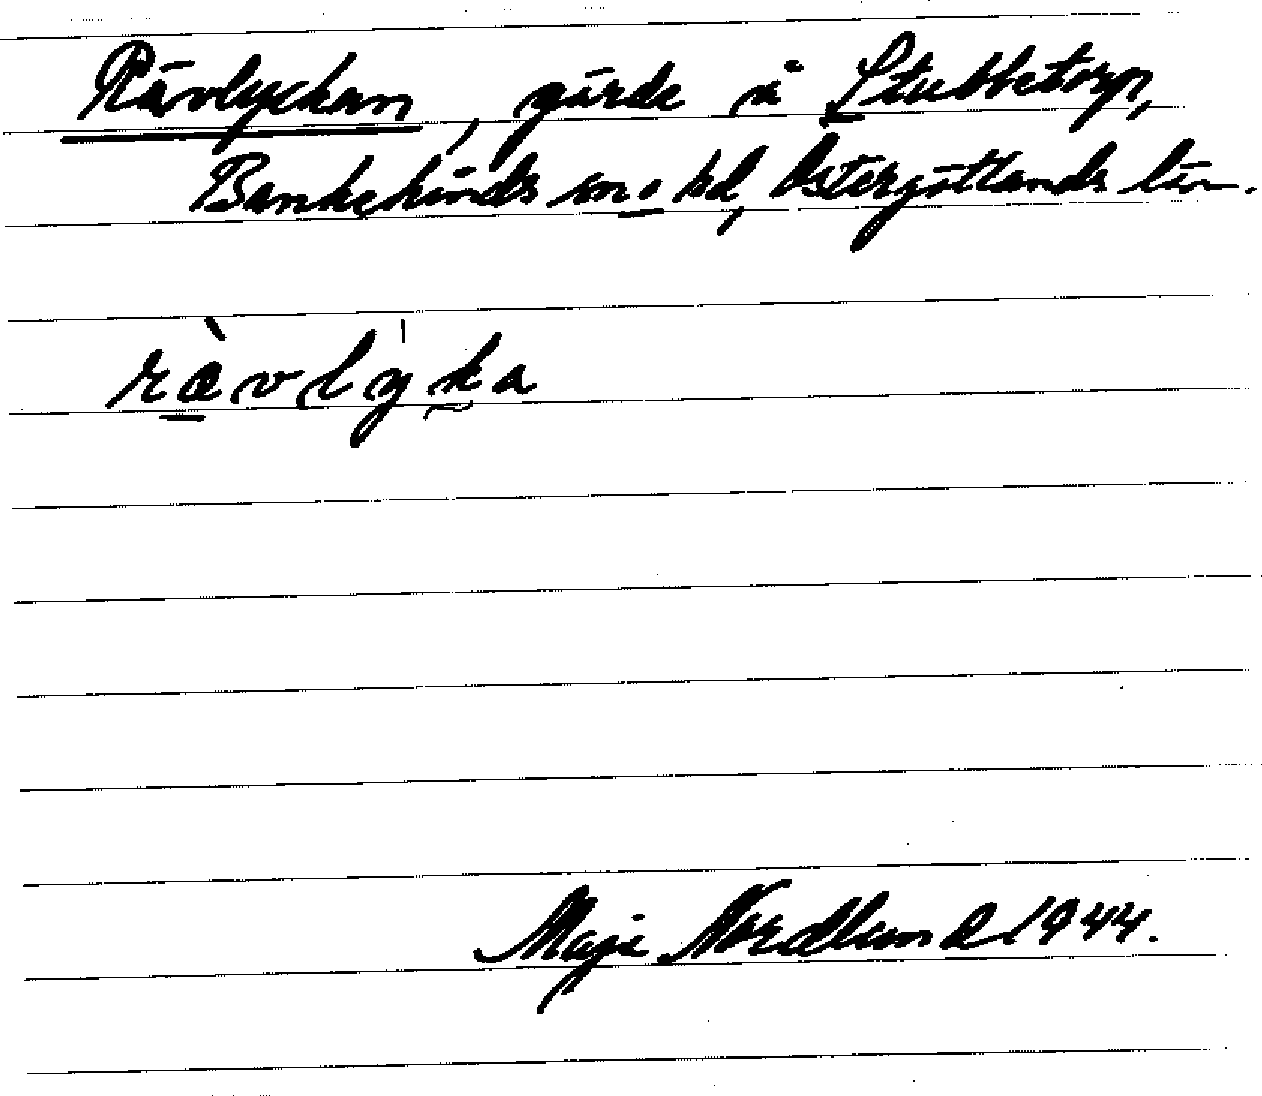 Rävlyckan, gärde å Stubbetorp,
Bankekinds sn o hd, Östergötlands län.
ræ̀vly̍ka
Maja Nordlund 1944.